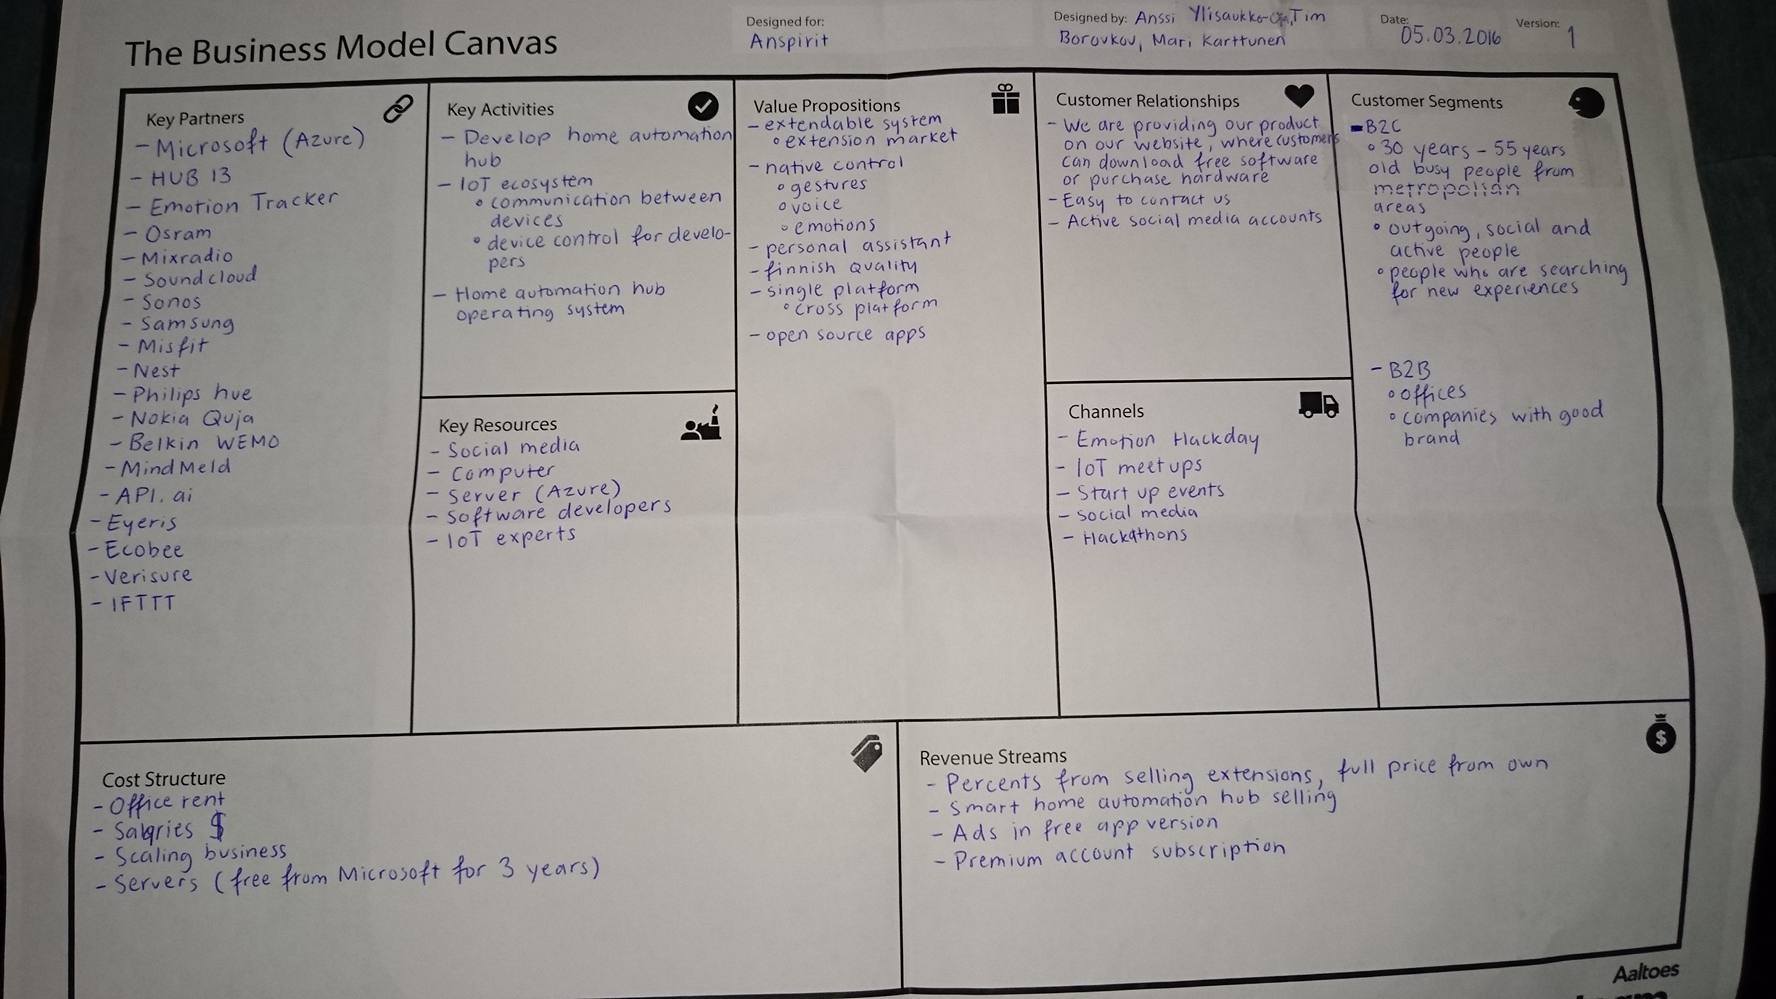 The Business Model Canvas
Designed for:
Anspirit
Designed by: Anssi Ylisaukko-Oja, Tim
Borovkov, Mari Karttunen
Date:
05.03.2016
Version:
1
Key Partners
- Microsoft (Azure)
- HUB 13
- Emotion Tracker
- Osram
- Mixradio
- Soundcloud
- Sonos
- Samsung
- Misfit
- Nest
- Philips hue
- Nokia Quja
- Belkin WEMO
- MindMeld
- API.ai
- Eyeris
- Ecobee
- Verisure
- IFTTT
Key Activities
- Develop home automation
hub
- IoT ecosystem
• communication between
devices
• device control for develo-
pers
- Home automation hub
operating system
Key Resources
- Social media
- Computer
- Server (Azure)
- Software developers
- IoT experts
Value Propositions
- extendable system
• extension market
- native control
• gestures
• voice
• emotions
- personal assistant
- finnish quality
- single platform
• cross platform
- open source apps
Customer Relationships
- We are providing our product
on our website, where customers
can download free software
or purchase hardware
- Easy to contact us
- Active social media accounts
Channels
- Emotion Hackday
- IoT meetups
- Start up events
- Social media
- Hackathons
Customer Segments
- B2C
• 30 years - 55 years
old busy people from
metropolian
areas
• outgoing, social and
active people
• people who are searching
for new experiences
- B2B
• offices
• companies with good
brand
Cost Structure
- Office rent
- Salaries $
- Scaling business
- Servers (free from Microsoft for 3 years)
Revenue Streams
- Percents from selling extensions, full price from own
- Smart home automation hub selling
- Ads in free app version
- Premium account subscription
$
Aaltoes